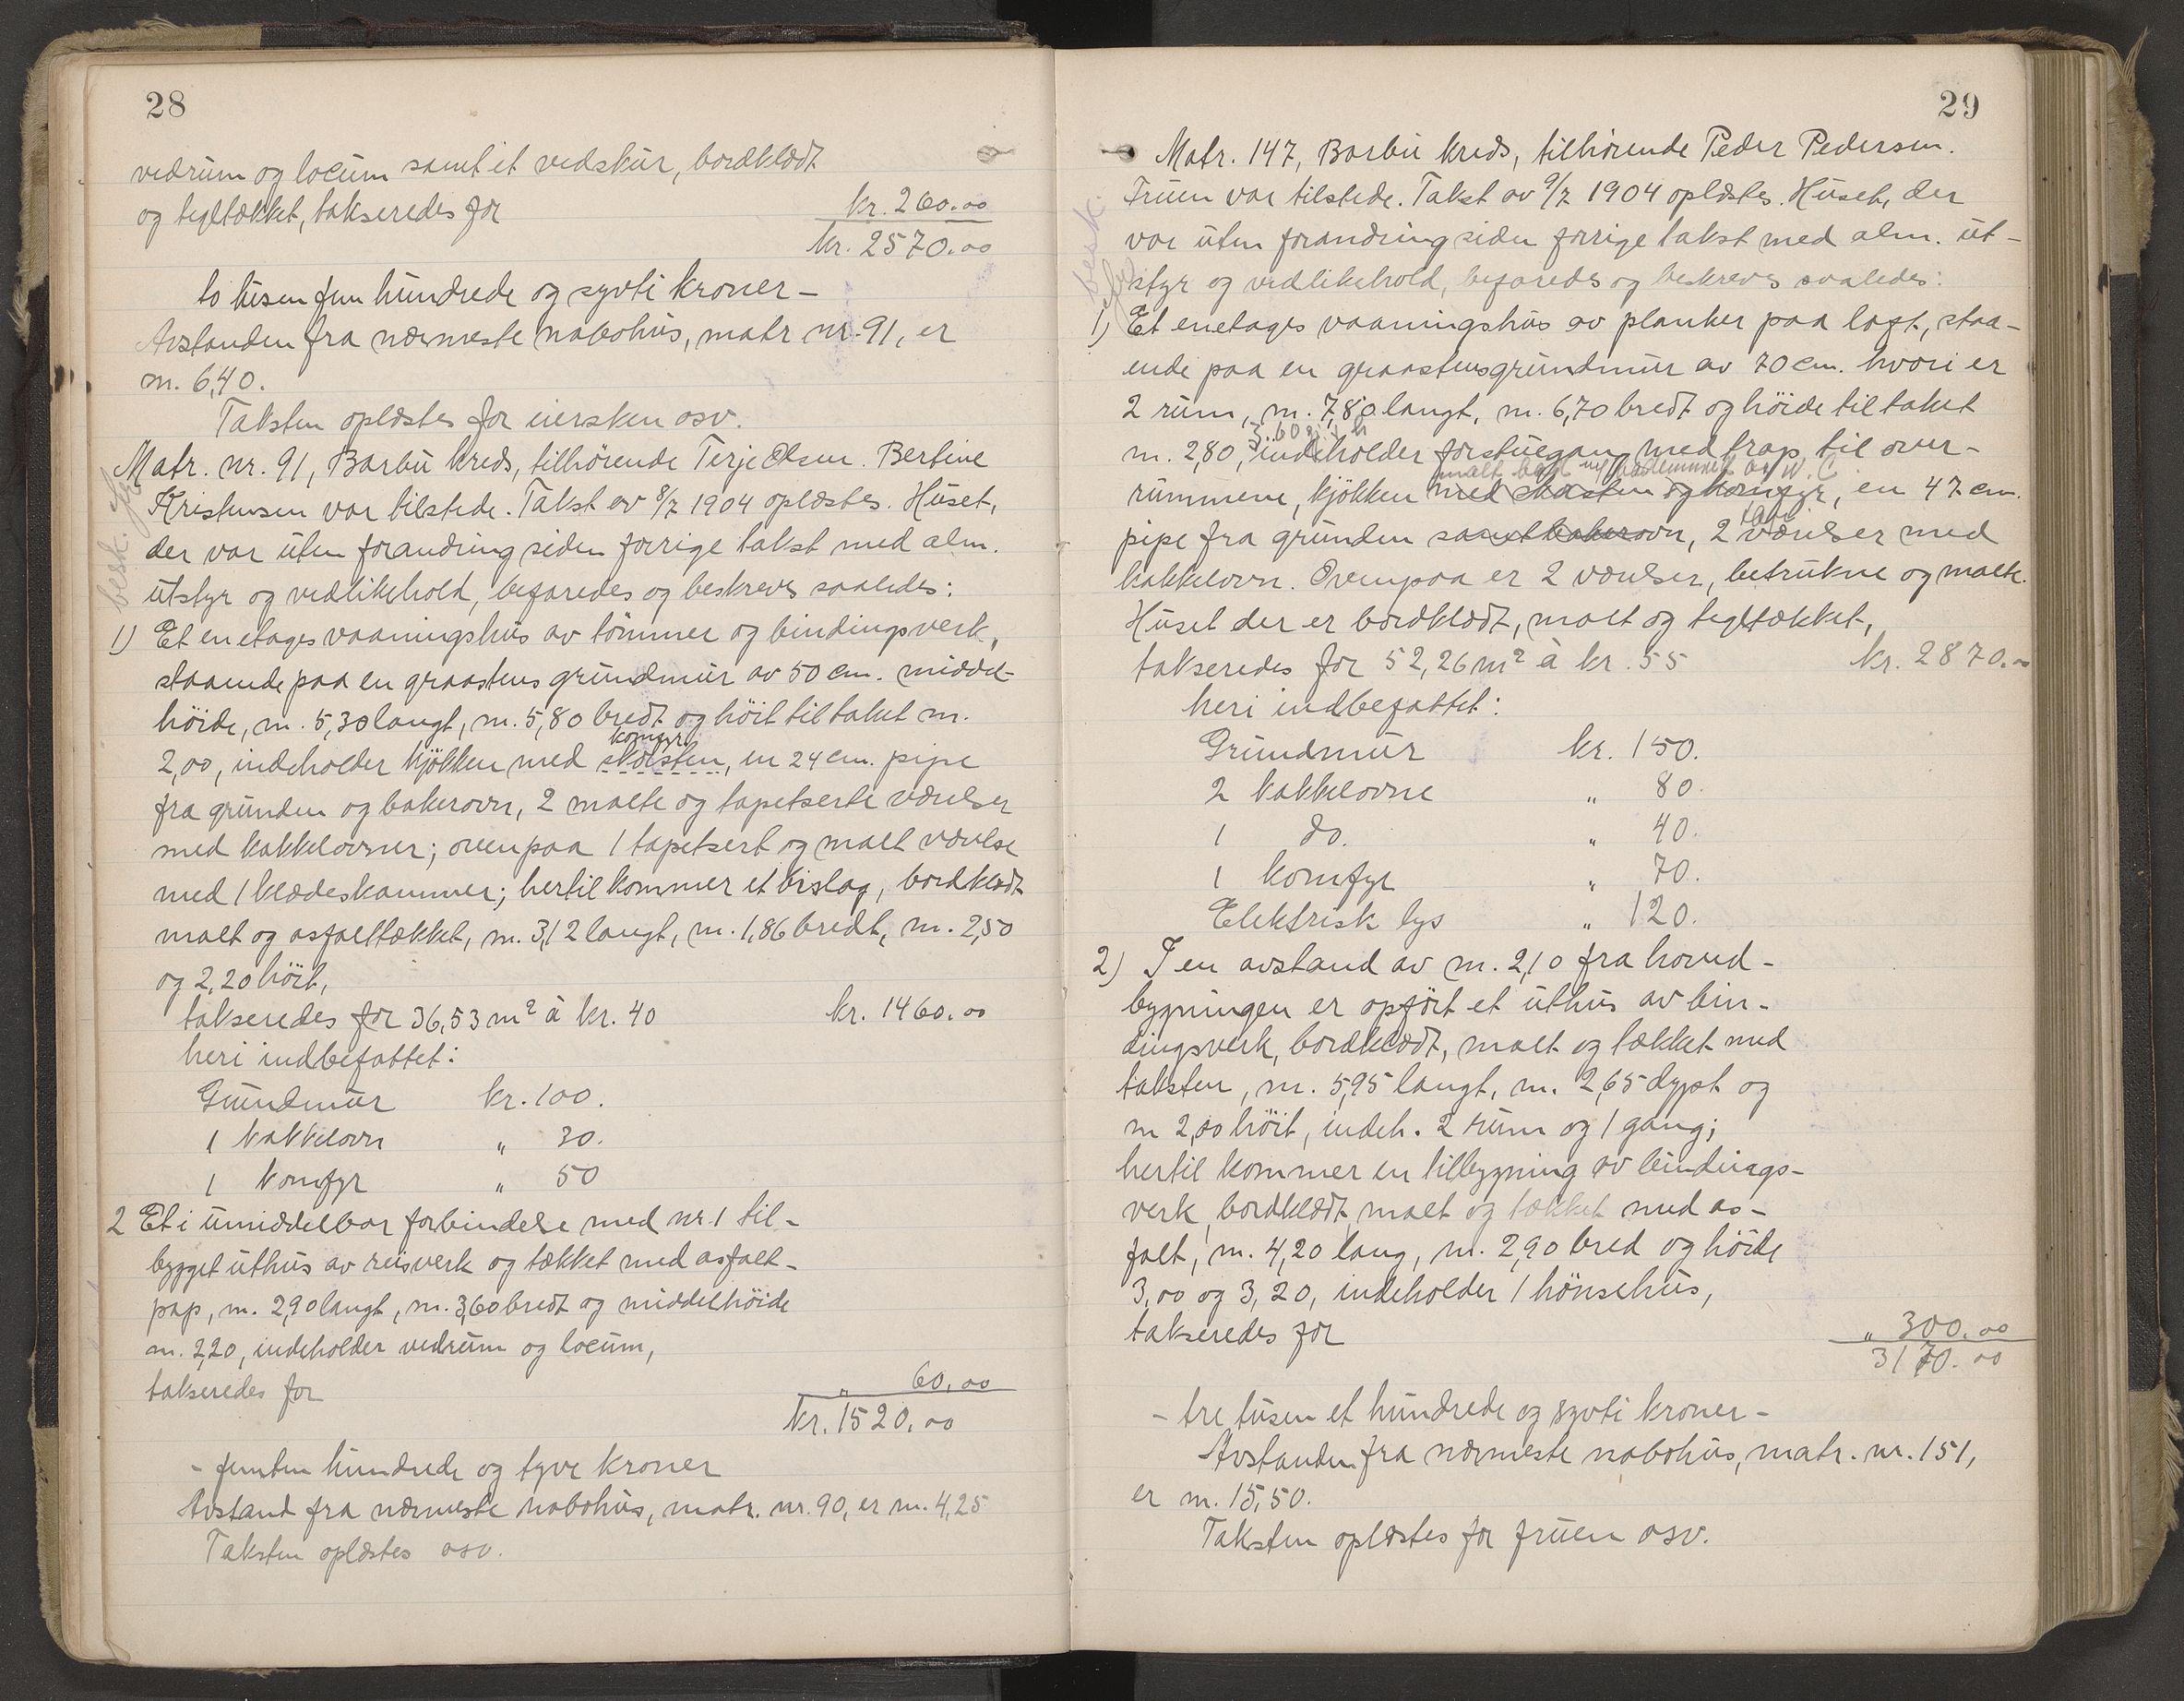 28
vedrum og locum samt et vedskur, bordklædt
og tegltækket, takseredes for kr. 260.00
kr. 2570.00
to tusen fem hundrede og sytti kroner -
Avstanden fra nærmeste nabohus, matr nr. 91, er
m. 6,40.
Taksten oplæstes for eiersken osv.
Matr. nr. 91, Barbu kreds, tilhørende Terje Olsen. Bertine
Kristensen var tilstede. Takst av 8/7 1904 oplæstes. Huset,
der var uten forandring siden forrige takst med alm.
utstyr og vedlikehold, befaredes og beskreves saaledes:
besk.
1) Et enetages vaaningshus av tømmer og bindingsverk,
staaende paa en graastens grundmur av 50 cm. middel-
höide, m. 5,30 langt, m. 5,80 bredt og höit til taket m.
komfyr
2,00, indeholder kjökken med skorsten, en 24 cm. pipe
fra grunden og bakerovn, 2 malte og tapetserte værelser
med kakkelovner; ovenpaa 1 tapetsert og malt værelse
med 1 klædeskammer; hertil kommer et bislag, bordklædt
malt og asfalttækket, m. 3,12 langt, m. 1,86 bredt, m. 2,50
og 2,20 höit,
takseredes for 36,53 m² à kr. 40 kr. 1460.00
heri indbefattet:
Grundmur kr. 100.
1 kakkelovn " 30.
1 komfyr " 50
2 Et i umiddelbar forbindelse med nr. 1 til-
bygget uthus av reisverk og tækket med asfalt-
pap, m. 2,90 langt, m. 3,60 bredt og middelhöide
m. 2,20, indeholder vedrum og locum,
takseredes for " 60.00
kr. 1520.00
- femten hundrede og tyve kroner
Avstand fra nærmeste nabohus, matr. nr. 90, er m. 4,25
Taksten oplæstes osv.
29
Matr. 147, Barbu kreds, tilhørende Peder Pedersen.
Fruen var tilstede. Takst av 9/7 1904 oplæstes. Huset, der
var uten forandring siden forrige takst med alm. ut-
styr og vedlikehold, befaredes og beskreves saaledes:
besk.
1) Et enetages vaaningshus av planker paa laft, staa-
ende paa en graastensgrundmur av 70 cm. hvori er
2 rum, m. 7,80 langt, m. 6,70 bredt og höide til taket
m. 2,80, indeholder forstuegang med trap til over-
rummene, kjökken med skorsten og komfyr, en 47 cm.
pipe fra grunden samt bakerovn, 2 værelser med
kakkelovn. Ovenpaa er 2 værelser, betrukne og malte.
Huset der er bordklædt, malt og tegltækket,
takseredes for 52,26 m² à kr. 55 kr. 2870.00
heri indbefattet:
Grundmur kr. 150.
2 kakkelovne " 80.
1 do. " 40.
1 komfyr " 70.
Elektrisk lys " 120.
2) I en avstand av m. 2,10 fra hoved-
bygningen er opført et uthus av bin-
dingsverk, bordklædt, malt og tækket med
taksten, m. 5,95 langt, m. 2,65 dypt og
m 2,00 höit, indeh. 2 rum og 1 gang;
hertil kommer en tilbygning av bindings-
verk, bordklædt, malt og tækket med as-
falt, m. 4,20 lang, m. 2,90 bred og höide
3,00 og 3,20, indeholder 1 hönsehus,
takseredes for " 300.00
3170.00
- tre tusen et hundrede og sytti kroner -
Avstanden fra nærmeste nabohus, matr. nr. 151,
er m. 15,50.
Taksten oplæstes for fruen osv.